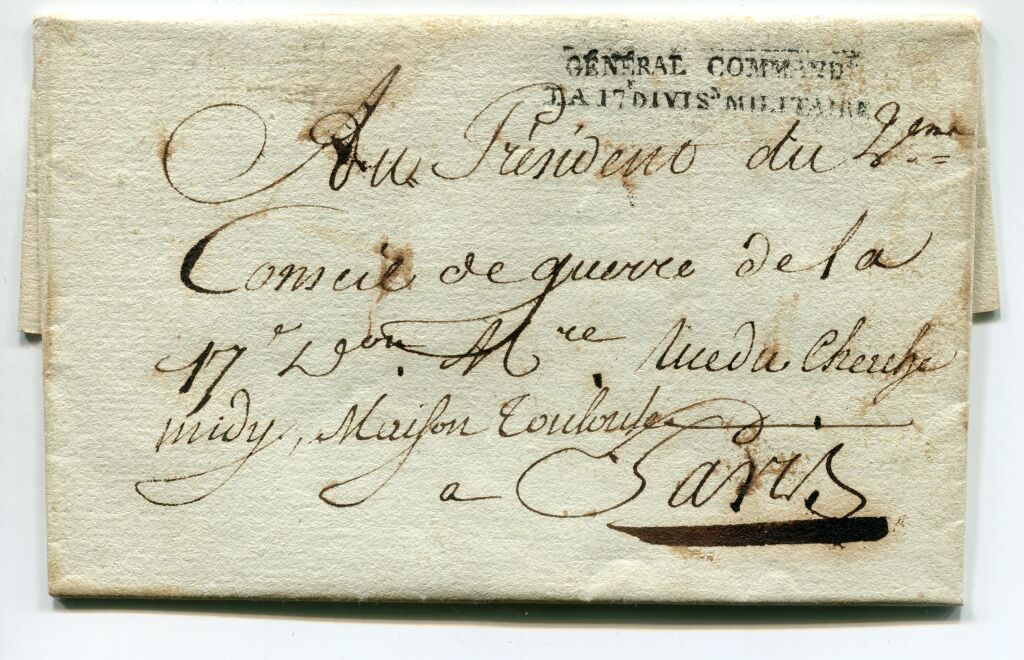 GÉNÉRAL COMMANDt
LA 17e DIVISn MILITAIRE
Au Président du 2eme
Conseil de guerre de la
17e Don. Mre. Rue du Cherche
midy, Maison Toulouse
a Paris